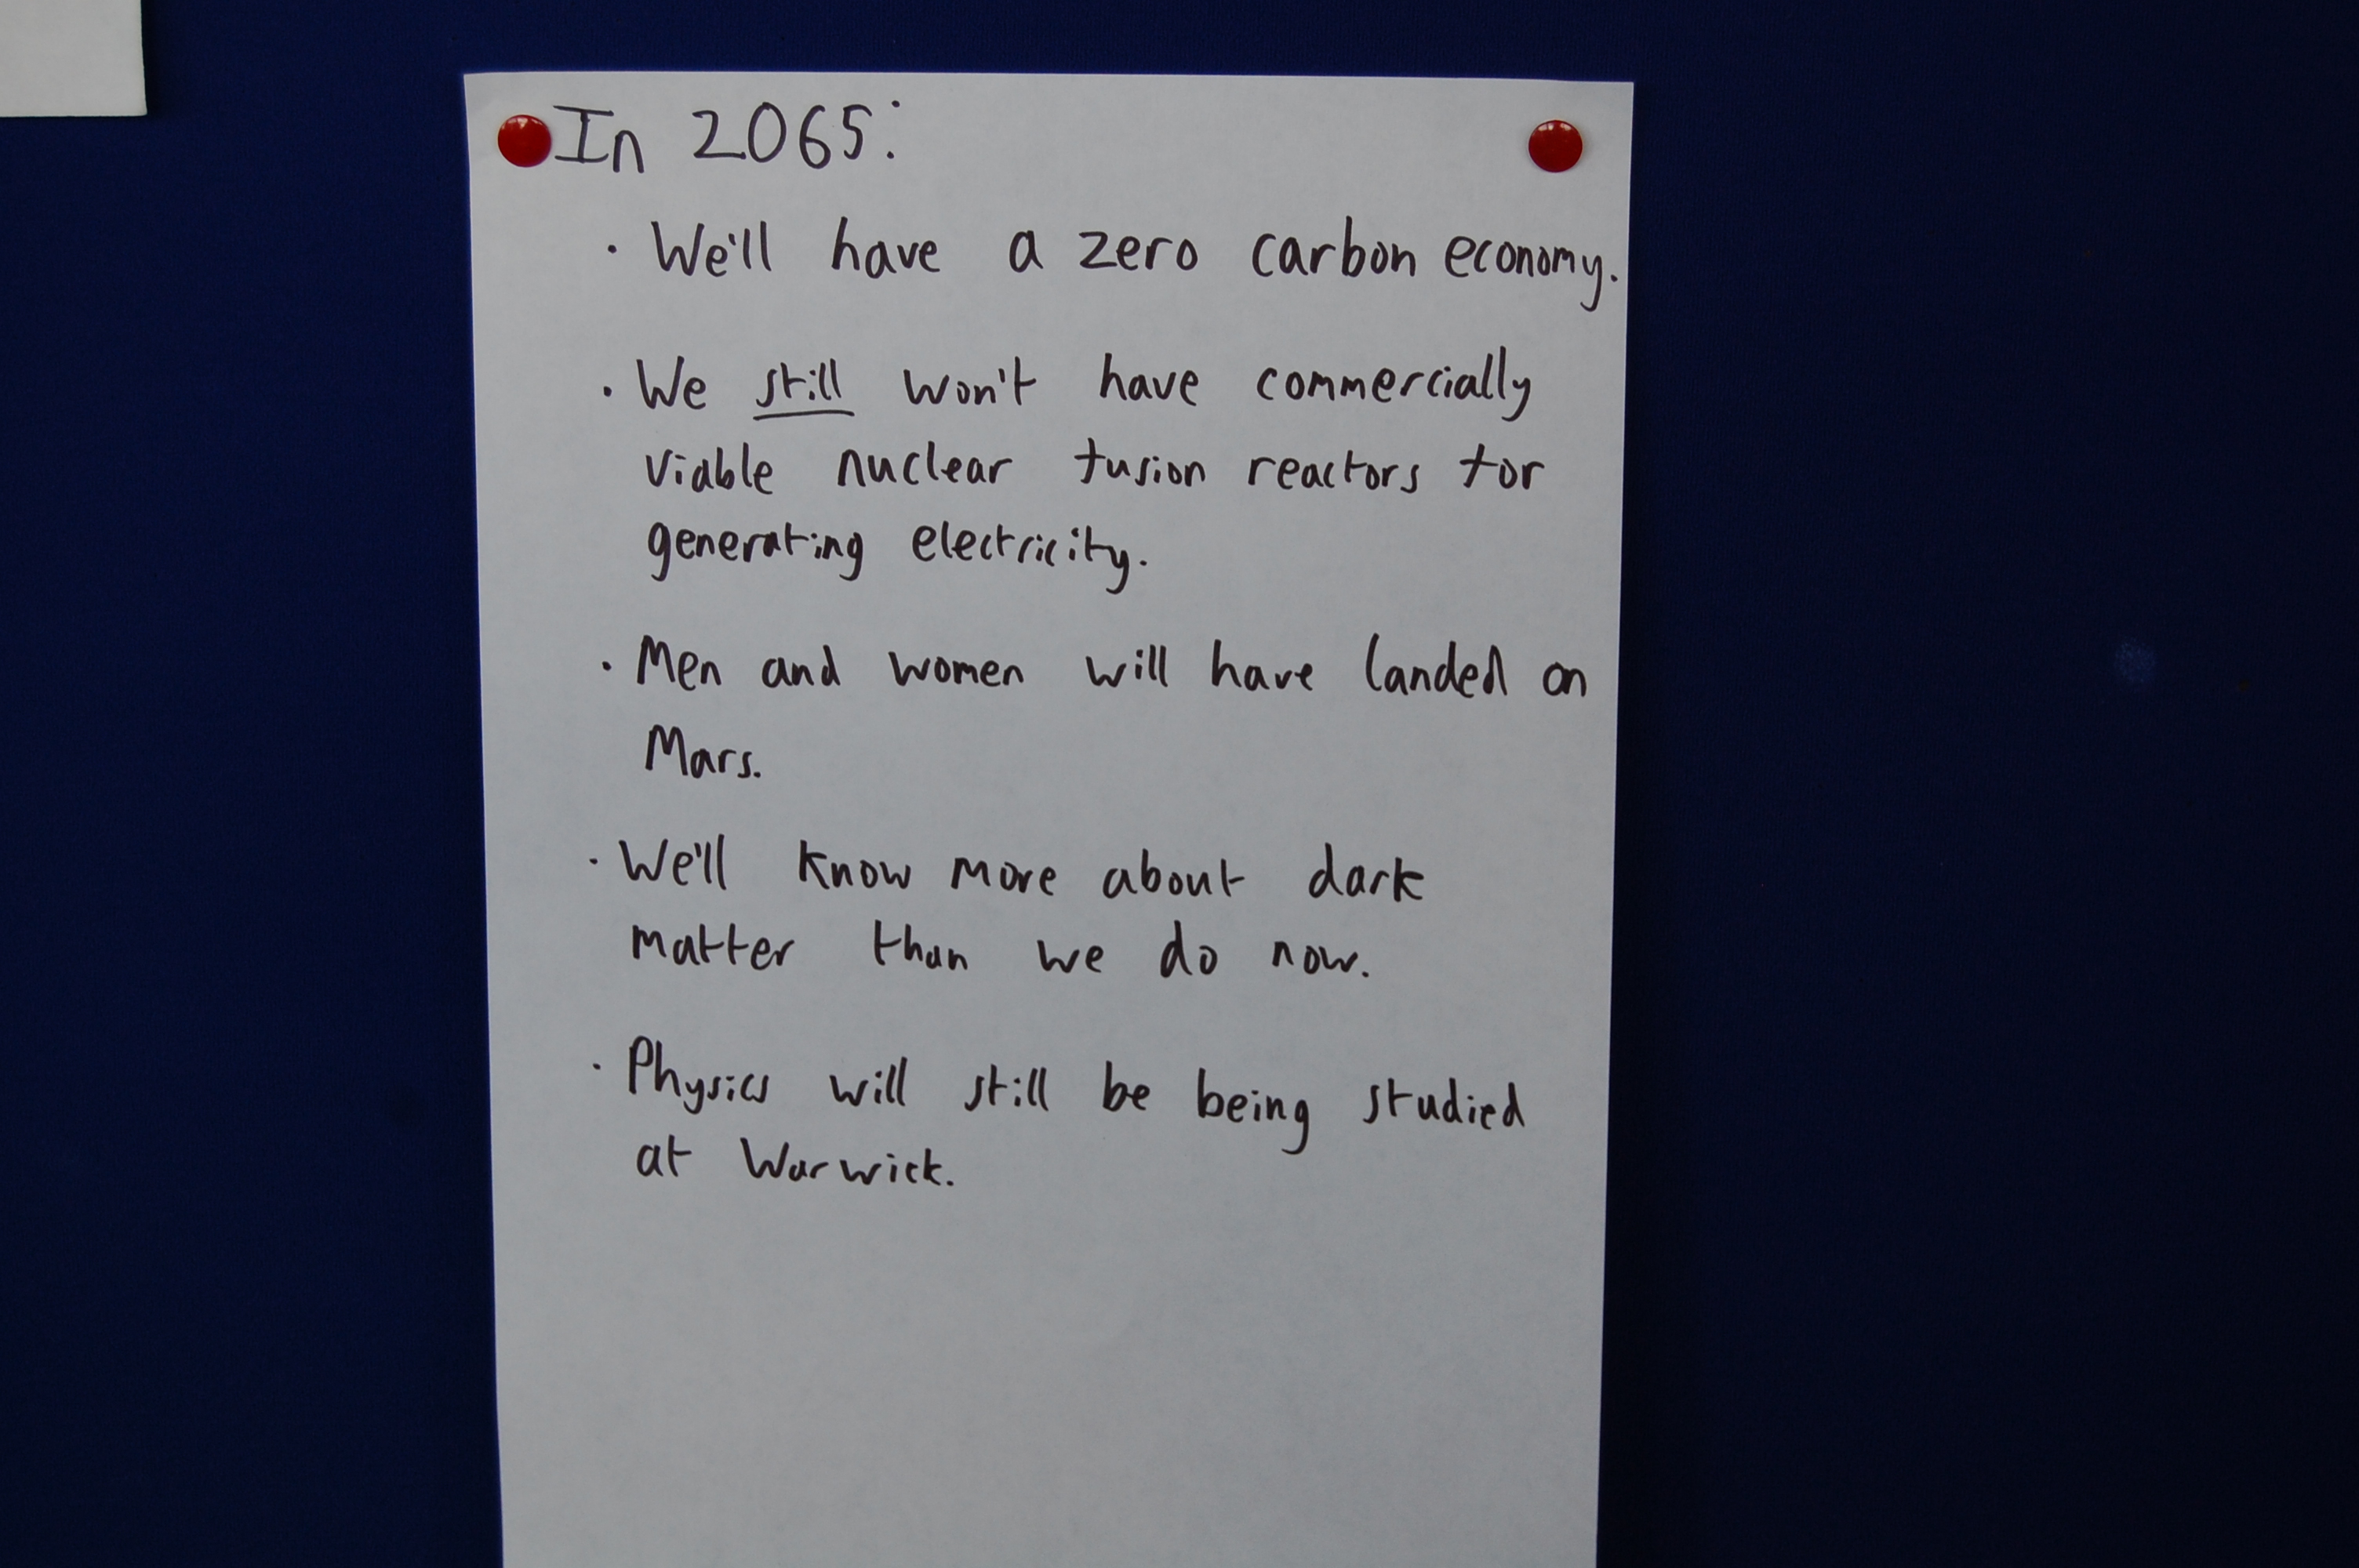 In 2065:
· We'll have a zero carbon economy.
· We still won't have commercially
viable nuclear fusion reactors for
generating electricity.
· Men and women will have landed on
Mars.
· We'll know more about dark
matter than we do now.
· Physics will still be being studied
at Warwick.